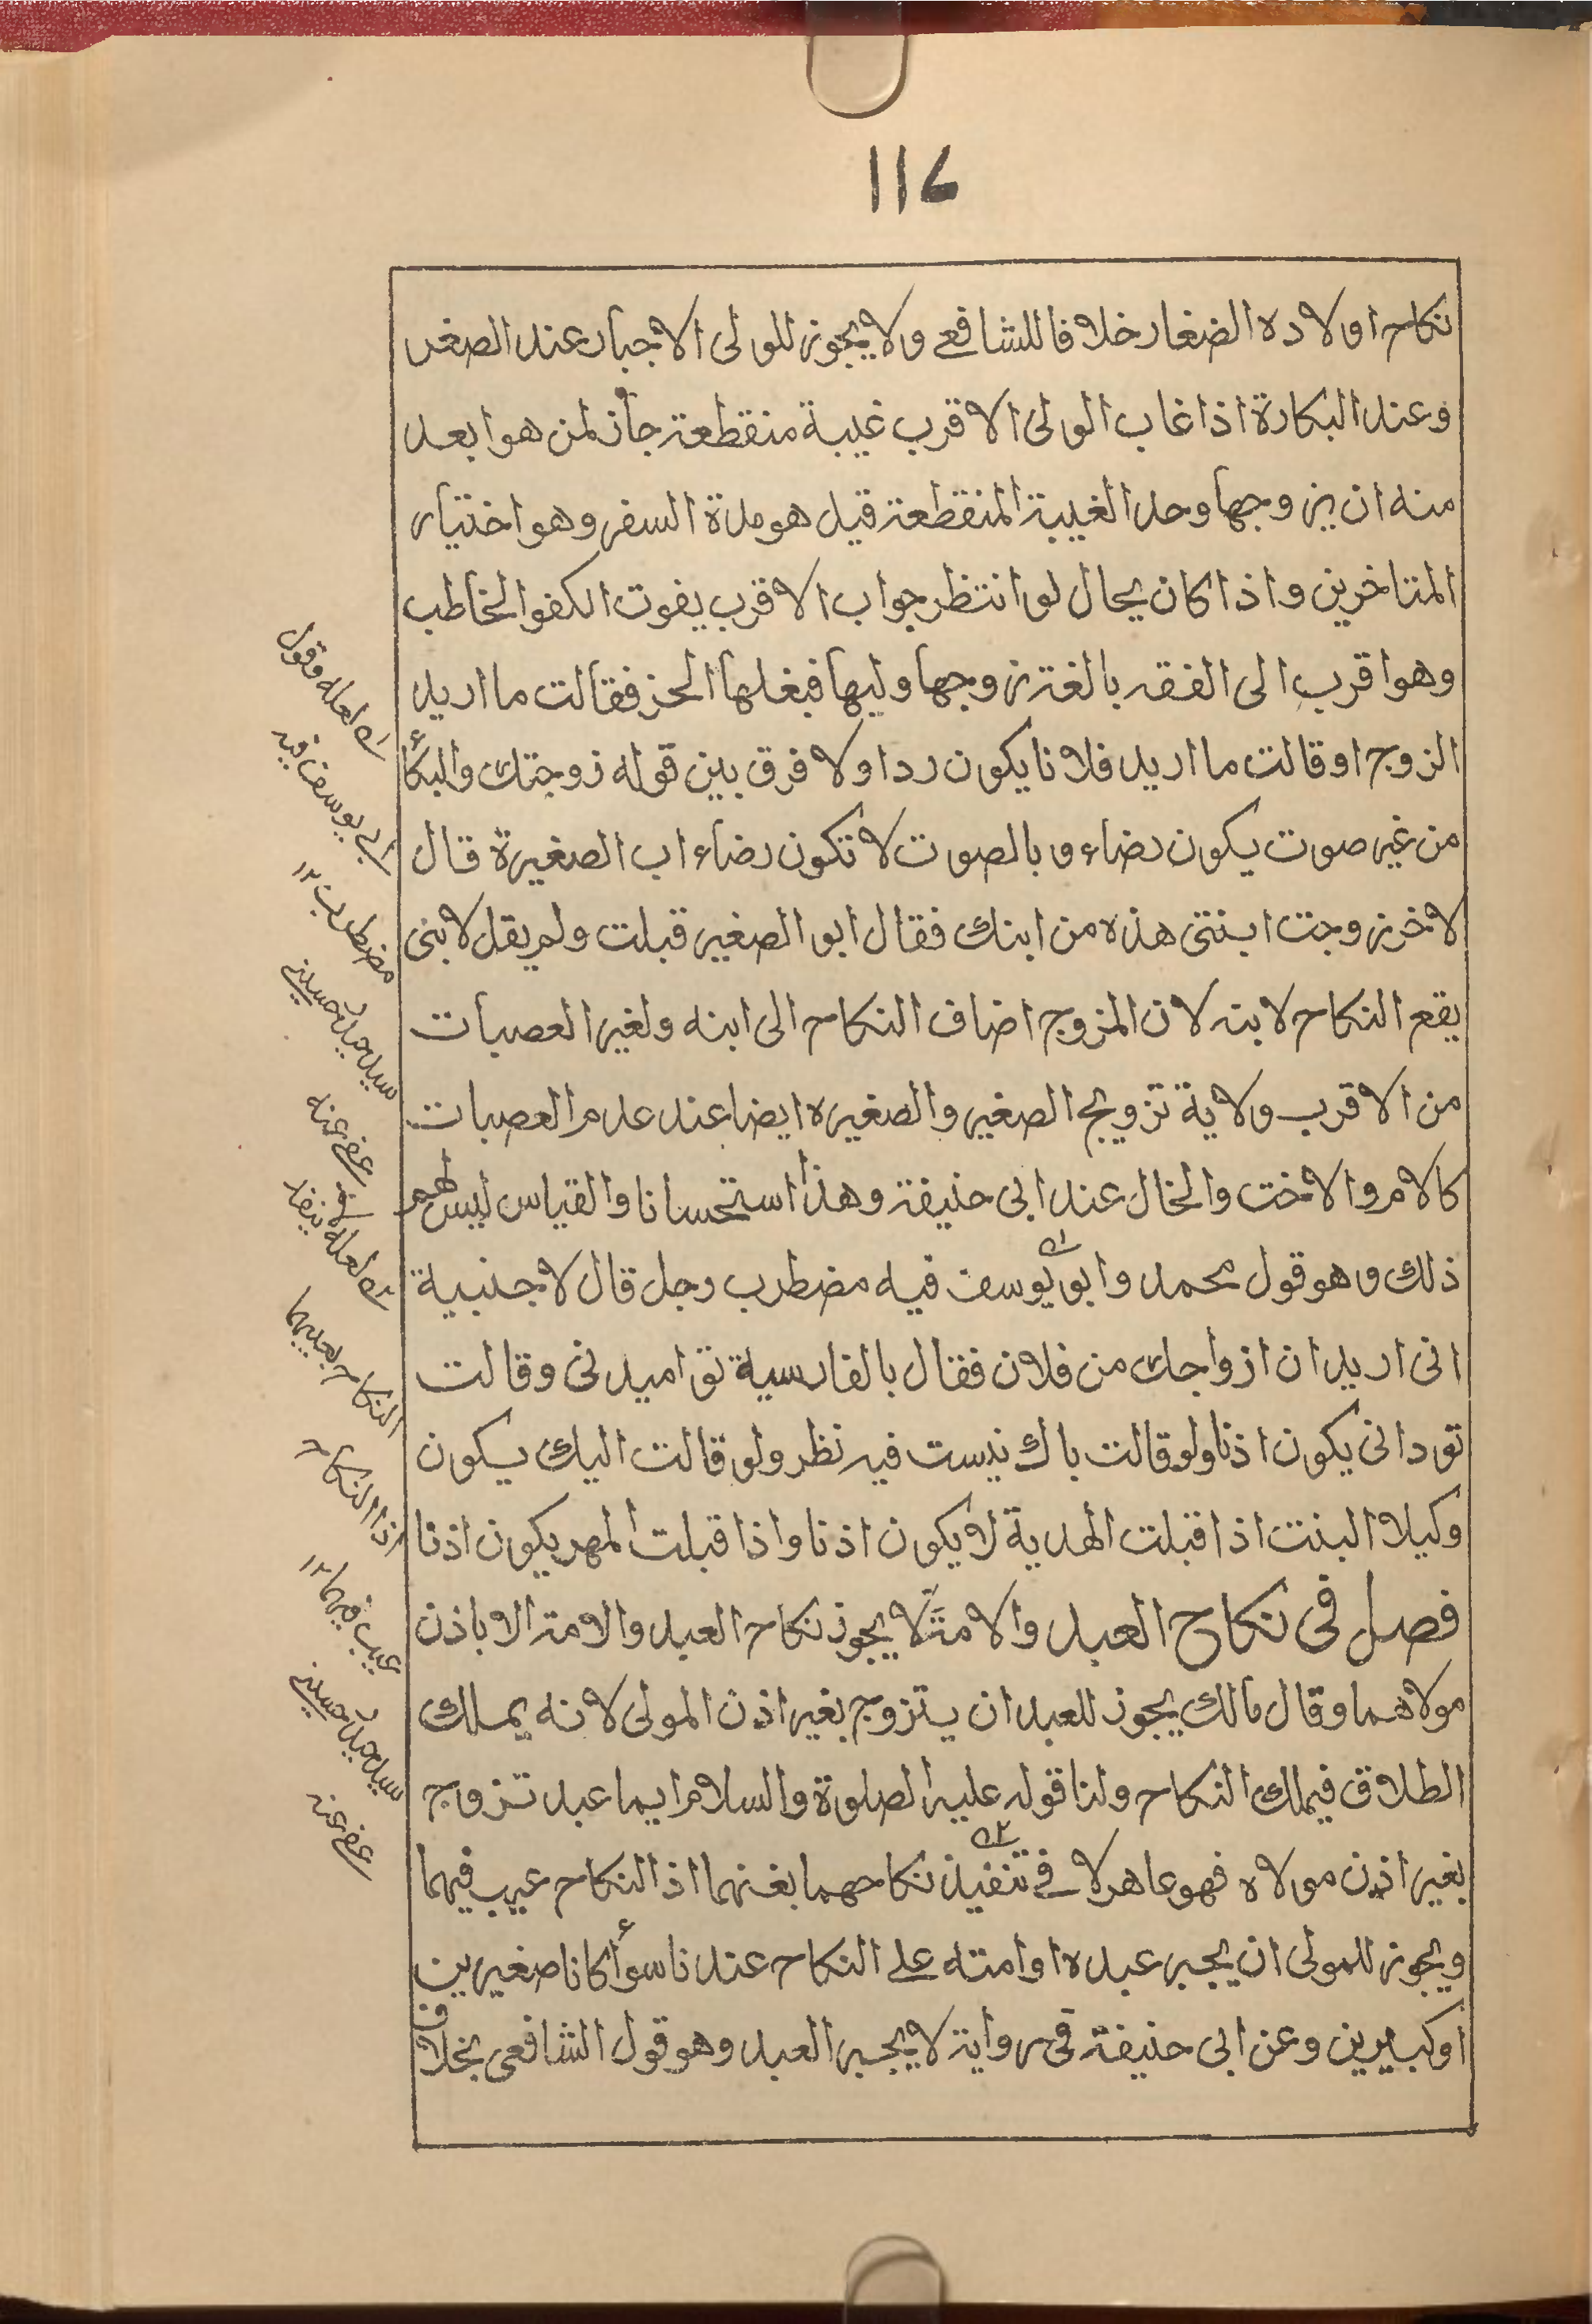 116
نكاح اولاده الضغار خلافا للشافعے ولا يجوز للولى الاجبار عند الصغر
وعند البكارة اذا غاب الولى الاقرب غيبة منقطعة جاز لمن هو ابعد
منه ان يزوجها وحد الغيبة المنقطعة قيل هو مدة السفر وهو اختيار
المتاخرين واذا كان بحال لو انتظر جواب الاقرب يفوت الكفو الخاطب
وهو اقرب الى الفقه بالغة زوجها وليها فبغلها الخبر فقالت ما اريد
الزوج او قالت ما اريد فلانا يكون ردا ولا فرق بين قوله زوجتك والبكأ
من غير صوت يكون رضاء و بالصوت لا تكون رضاء اب الصغيرة قال
لاخر زوجت ابنتى هذه من ابنك فقال ابو الصغير قبلت ولم يقل لابنى
يقع النكاح لابنه لان المزوج اضاف النكاح الى ابنه ولغير العصبات
من الاقرب ولاية تزويج الصغير والصغيره ايضا عند عدم العصبات
كالام والاخت والخال عند ابى حنيفة وهذا استحسانا والقياس ليس لهم
ذلك و هو قول محمد وابو يوسف فيه مضطرب رجل قال لاجنبية
انى اريد ان ازواجك من فلان فقال بالفارسية تو اميدنى وقالت
تو دانى يكون اذنا ولو قالت باك نيست فيه نظر ولو قالت اليك يكون
وكيلا البنت اذا قبلت الهدية لا يكون اذنا واذا قبلت المهر يكون اذنا
فصل فى نكاح العبد والامة لا يجوز نكاح العبد والامة الا باذن
مولاهما وقال مالك يجوز للعبد ان يتزوج بغير اذن المولى لانه يملك
الطلاق فيملك النكاح ولنا قوله عليه الصلوة والسلام ايما عبد تزوج
بغير اذن مولاه فهو عاهر لا فے تنفيذ نكاحهما بغنهما اذ النكاح عيب فيهما
ويجوز للمولى ان يجبر عبده او امته على النكاح عندنا سوأ كانا صغيرين
او كبيرين وعن ابى حنيفة فى رواية لا يجبر العبد وهو قول الشافعى بخلاف
لعله وقول
ابى يوسف فيه
مضطرب ١٢
عفى عنه
لعله
النكاح
اذ النكاح
عيب فيهما ١٢
عفى عنه